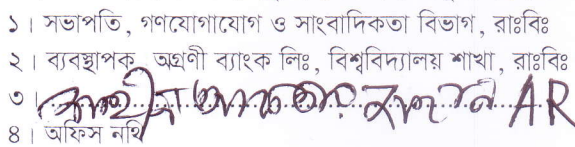 ১। সভাপতি, গণযোগাযোগ ও সাংবাদিকতা বিভাগ, রাঃবিঃ
২। ব্যবস্থাপক, অগ্রণী ব্যাংক লিঃ, বিশ্ববিদ্যালয় শাখা, রাঃবিঃ
৩। AR
৪। অফিস নথি